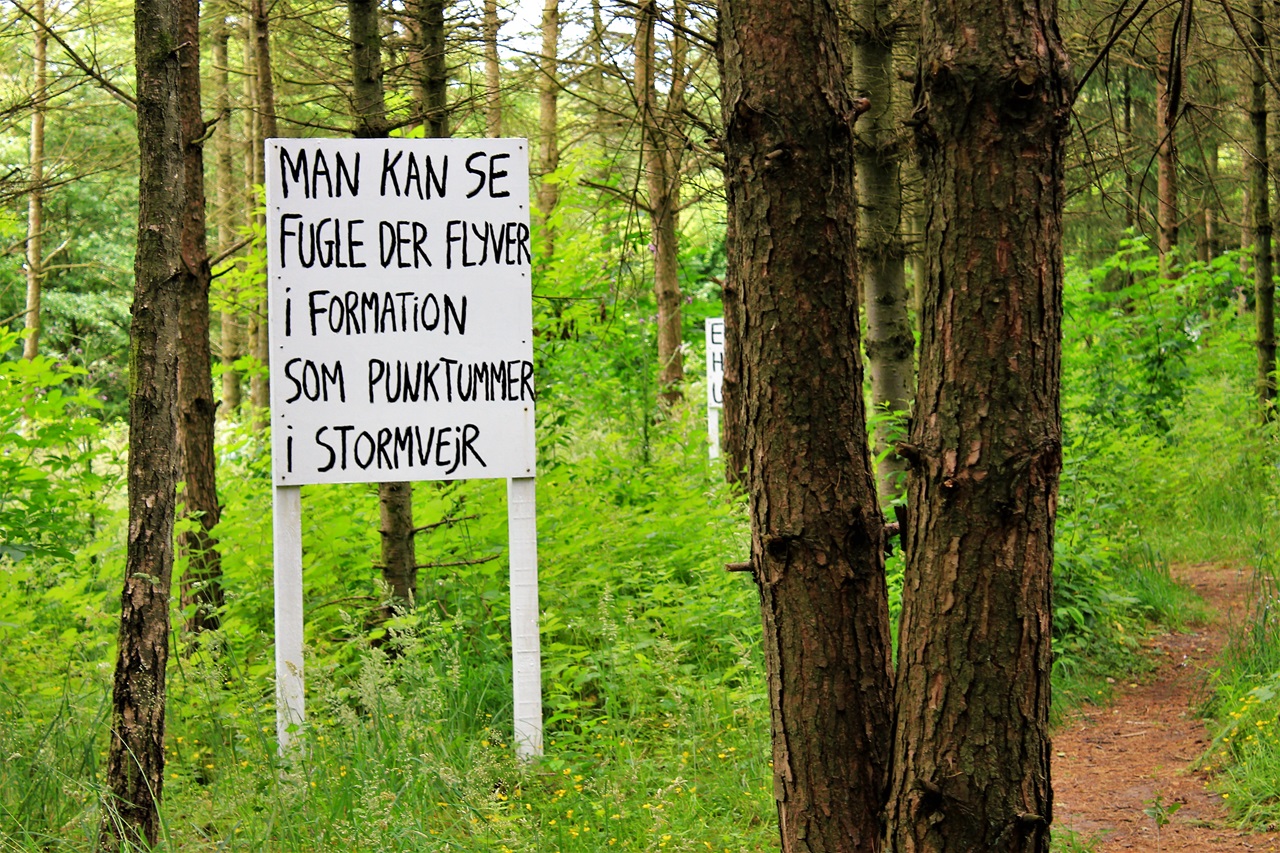 MAN KAN SE
FUGLE DER FLYVER
i FORMATiON
SOM PUNKTUMMER
i STORMVEjR
E
H
U